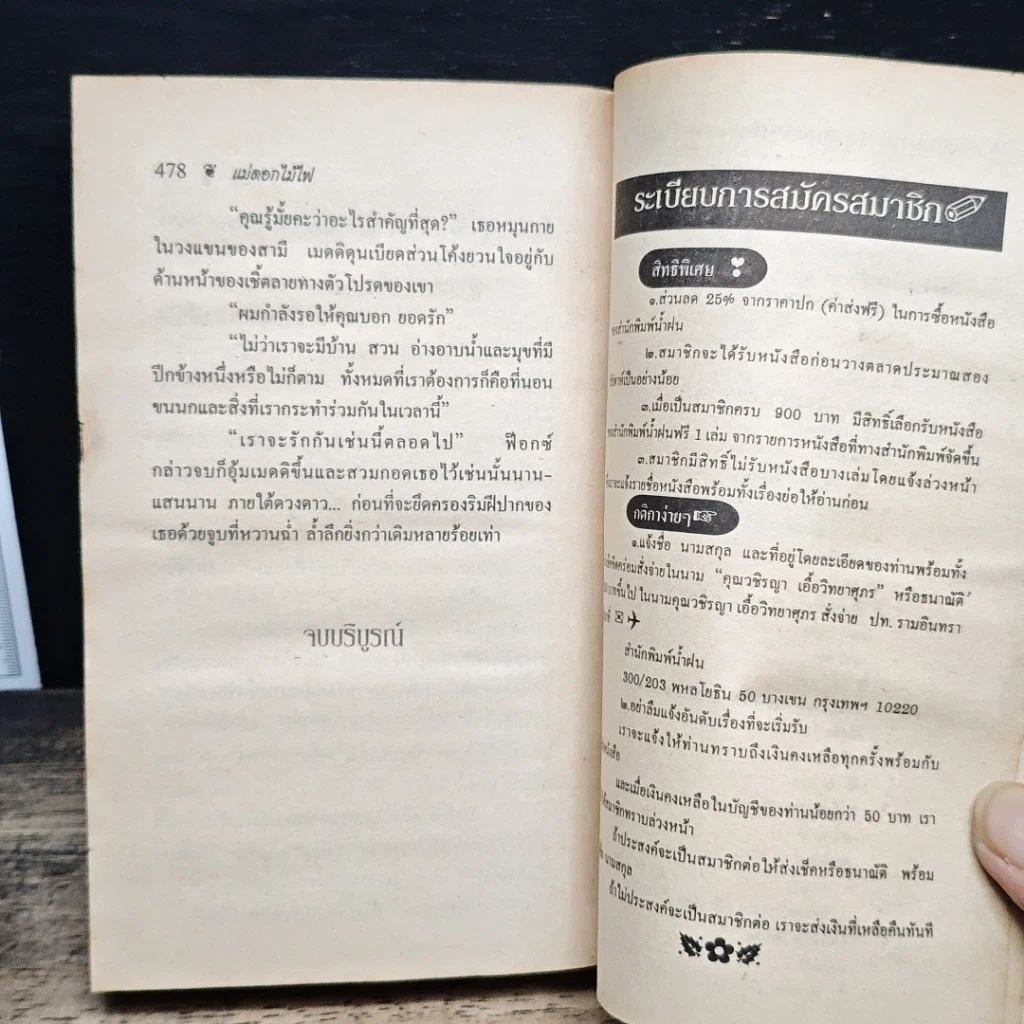 478 แม่ดอกไม้ไฟ
“คุณรู้มั้ยคะว่าอะไรสำคัญที่สุด?” เธอหมุนกาย
ในวงแขนของสามี เมดดิดุนเบียดส่วนโค้งยวนใจอยู่กับ
ด้านหน้าของเชิ้ตลายทางตัวโปรดของเขา
“ผมกำลังรอให้คุณบอก ยอดรัก”
“ไม่ว่าเราจะมีบ้าน สวน อ่างอาบน้ำและมุขที่มี
ปีกข้างหนึ่งหรือไม่ก็ตาม ทั้งหมดที่เราต้องการก็คือที่นอน
ขนนกและสิ่งที่เรากระทำร่วมกันในเวลานี้”
“เราจะรักกันเช่นนี้ตลอดไป” ฟ๊อกซ์
กล่าวจบก็อุ้มเมดดิขึ้นและสวมกอดเธอไว้เช่นนั้นนาน-
แสนนาน ภายใต้ดวงดาว... ก่อนที่จะยึดครองริมฝีปากของ
เธอด้วยจูบที่หวานฉ่ำ ล้ำลึกยิ่งกว่าเดิมหลายร้อยเท่า
จบบริบูรณ์
ระเบียบการสมัครสมาชิก
สิทธิพิเศษ
๑.ส่วนลด 25% จากราคาปก (ค่าส่งฟรี) ในการซื้อหนังสือ
ของสำนักพิมพ์น้ำฝน
๒.สมาชิกจะได้รับหนังสือก่อนวางตลาดประมาณสอง
เป็นอย่างน้อย
๓.เมื่อเป็นสมาชิกครบ 900 บาท มีสิทธิ์เลือกรับหนังสือ
ของสำนักพิมพ์น้ำฝนฟรี 1 เล่ม จากรายการหนังสือที่ทางสำนักพิมพ์จัดขึ้น
๓.สมาชิกมีสิทธิ์ไม่รับหนังสือบางเล่มโดยแจ้งล่วงหน้า
จะแจ้งรายชื่อหนังสือพร้อมทั้งเรื่องย่อให้อ่านก่อน
กติกาง่ายๆ
๑.แจ้งชื่อ นามสกุล และที่อยู่โดยละเอียดของท่านพร้อมทั้ง
สั่งจ่ายในนาม “คุณวชิรญา เอื้อวิทยาศุภร” หรือธนาณัติ
ขึ้นไป ในนามคุณวชิรญา เอื้อวิทยาศุภร สั่งจ่าย ปท. รามอินทรา
สำนักพิมพ์น้ำฝน
300/203 พหลโยธิน 50 บางเขน กรุงเทพฯ 10220
๒.อย่าลืมแจ้งอันดับเรื่องที่จะเริ่มรับ
เราจะแจ้งให้ท่านทราบถึงเงินคงเหลือทุกครั้งพร้อมกับ
หนังสือ
และเมื่อเงินคงเหลือในบัญชีของท่านน้อยกว่า 50 บาท เรา
ให้สมาชิกทราบล่วงหน้า
ถ้าประสงค์จะเป็นสมาชิกต่อให้ส่งเช็คหรือธนาณัติ พร้อม
นามสกุล
ถ้าไม่ประสงค์จะเป็นสมาชิกต่อ เราจะส่งเงินที่เหลือคืนทันที